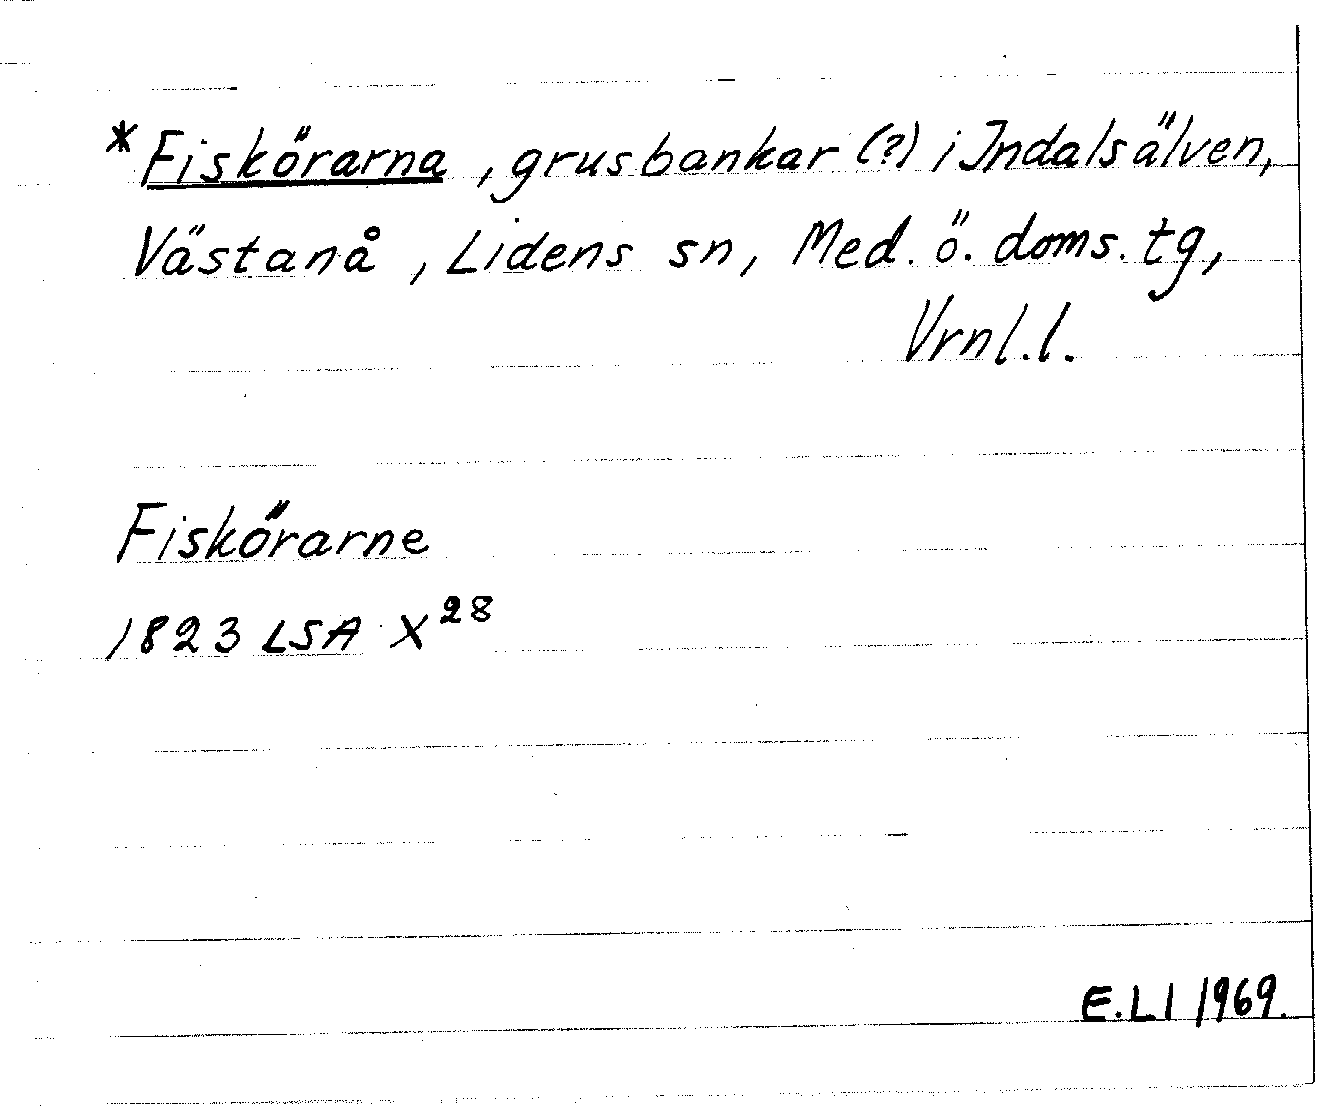 *Fiskörarna, grusbankar (?) i Indalsälven,
Västanå, Lidens sn, Med. ö. doms. tg,
Vrnl.l.
Fiskörarne
1823 LSA X²⁸
E.LI 1969.